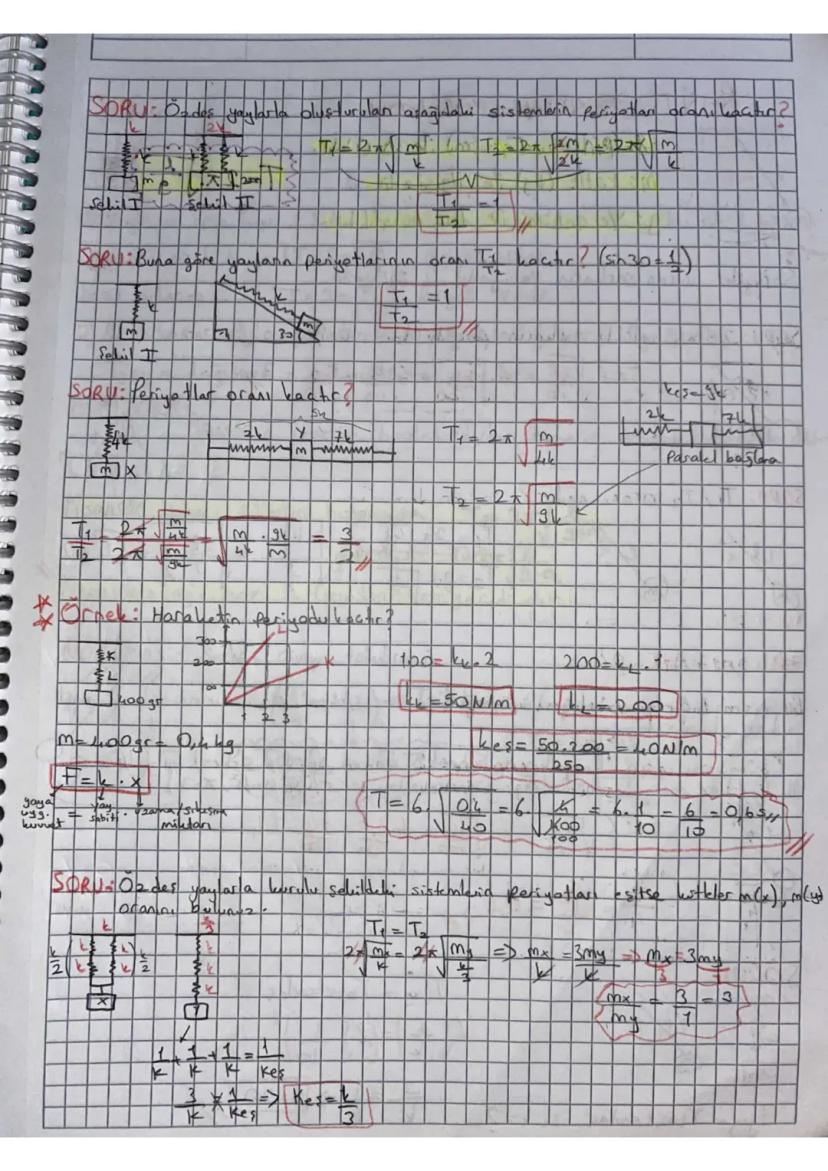 SORU: Özdeş yaylarla oluşturulan aşağıdaki sistemlerin periyotları oranı kaçtır?
k 2k
T₁ = 2π√(m/k) T₂ = 2π√(2m/2k) = 2π√(m/k)
k
m 2m
Şekil I Şekil II
T₁/T₂ = 1
SORU: Buna göre yayların periyotlarının oranı T₁/T₂ kaçtır? (sin30 = 1/2)
k k
T₁/T₂ = 1
m m 30
Şekil II
SORU: Periyotlar oranı kaçtır?
keş = 9k
4k 2k Y 7k
m X m
T₁ = 2π√(m/4k)
2k 7k
Paralel bağlama
T₂ = 2π√(m/9k)
T₁/T₂ = 2π√(m/4k) / 2π√(m/9k) = √(m/4k · 9k/m) = 3/2
Örnek: Hareketin periyodu kaçtır?
300 L
K 200 K
L
400gr
1 2 3
100 = kK · 2 200 = kL · 1
kK = 50 N/m kL = 200
m = 400gr = 0,4 kg
keş = 50.200/250 = 40 N/m
F = k · x
yaya uyg. kuvvet = yay sabiti · uzama/sıkışma miktarı
T = 6√(0,4/40) = 6 · √(4/400) = 6 · 1/10 = 6/10 = 0,6s
SORU: Özdeş yaylarla kurulu şekildeki sistemlerin periyotları eşitse kütleler m(x), m(y)
oranını bulunuz.
k k/3
k/2 k k k k k/2
k
k
k
X Y
T₁ = T₂
2π√(mx/k) = 2π√(my/(k/3)) => mx/k = 3my/k => mx = 3my
mx/my = 3/1 = 3
1/k + 1/k + 1/k = 1/keş
3/k = 1/keş => Keş = k/3